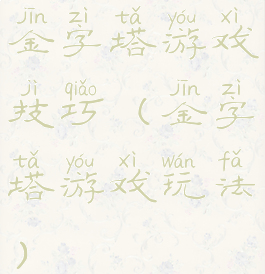 jīn zì tǎ yóu xì
金字塔游戏
jì qiǎo jīn zì
技巧(金字
tǎ yóu xì wán fǎ
塔游戏玩法
)